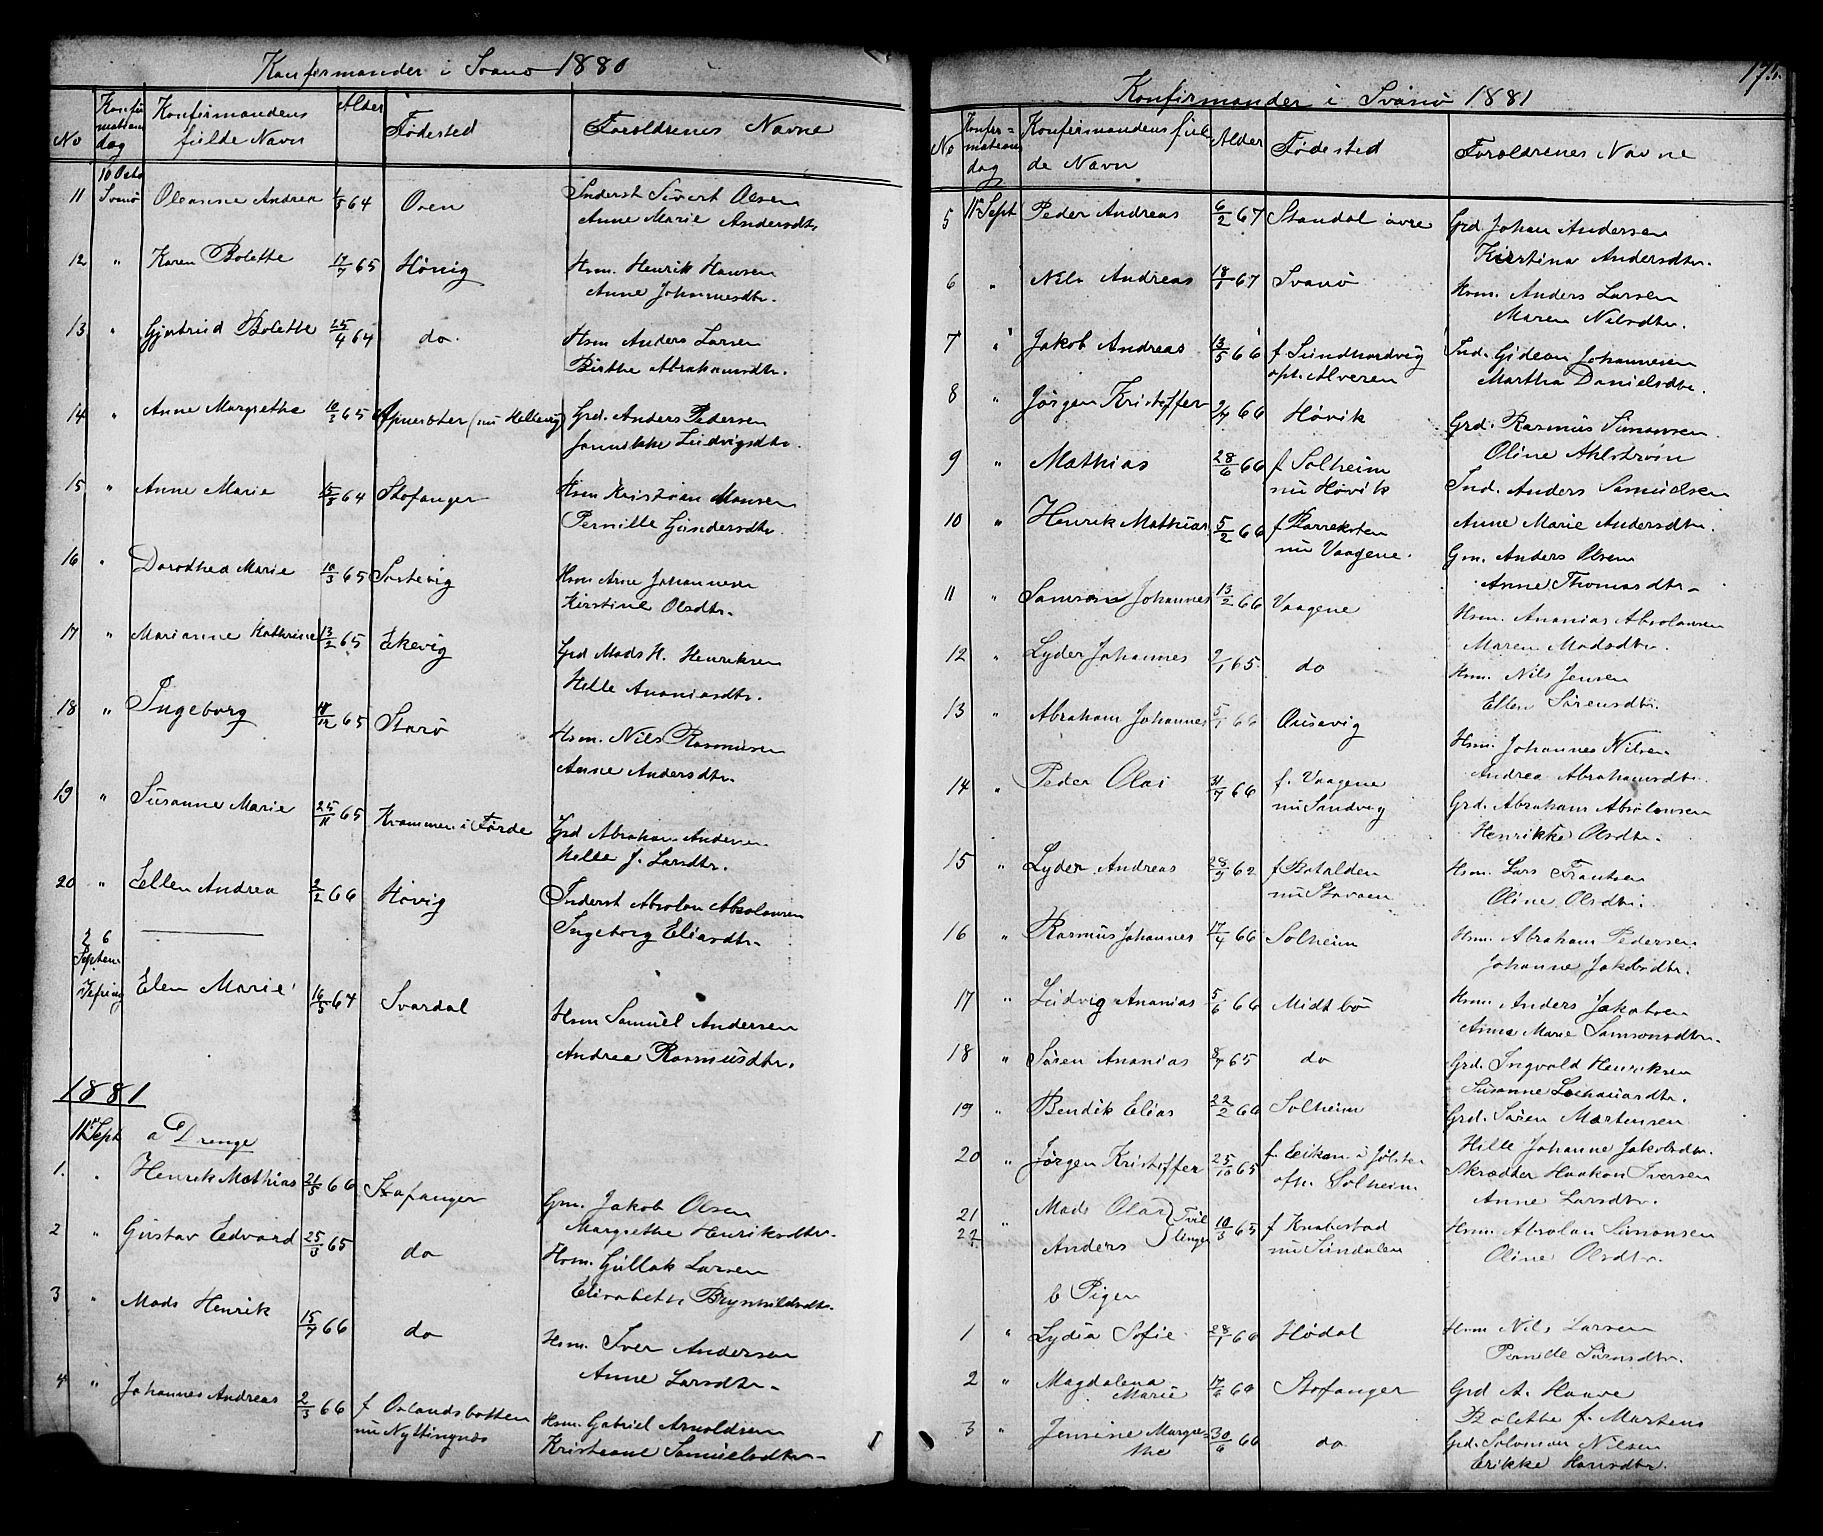 Konfirmander i Svanø 1880
No Konfirmations dag Konfirmandens fulde Navn Alder Fødested Forældrenes Navne
10 Octo
11 Svanø Oleanne Andrea 64 Oven Inderst Sivert Olsen
Anne Marie Andersdtr
12 " Karen Bolette 17/7 65 Hövig Hsm. Henrik Hansen
Anne Johannesdtr.
13 " Gjertrud Bolette 25/4 64 do. Hsm Anders Larsen
Birthe Abrahamsdtr.
14 " Anne Margrethe 10/2 65 (nu Hellevig) Grd. Anders Pedersen
Jannikke Ludvigsdtr.
15 " Anne Marie 15/3 64 Stofanger Hsm Kristian Monsen
Pernille Gundersdtr.
16 " Dorothea Marie 10/3 65 Sostevig Hsm Arne Johannesen
Kirstine Olsdtr.
17 " Marianne Kathrine 13/2 65 Ekevig Grd Mads H. Henriksen
Helle Ananiasdtr.
18 " Ingeborg 65 Starø Hsm. Nils Rasmusen
Anne Andersdtr.
19 " Susanne Marie 25/11 65 Krammer i Førde Grd Abraham Andersen
Helle J. Larsdtr.
20 " Ellen Andrea 2/2 66 Hövig Inderst Absolon Absolonsen
Ingeborg Eliasdtr.
26 Septem.
i Vefring Elen Marie 16/5 64 Svardal Hsm Samuel Andersen
Andrea Rasmusdtr.
1881
11te Sept a Drenge
1. " Henrik Mathias 21/5 66 Stafanger Gm. Jakob Olsen
Margrethe Henriksdtr.
2 " Gustav Edvard 25/3 65 do Hsm. Gullak Larsen
Elisabeth Brynhildsdtr.
3 " Mads Henrik 15/7 66 do Hsm. Iver Andersen
Anne Larsdtr.
4 " Johannes Andreas 2/3 66 f Oslandsbotten Hsm. Gabriel Arnoldsen
nu Nyttingnæs Kristiane Samuelsdtr.
175.
Konfirmander i Svanø 1881
No Konfirmations dag Konfirmandens fulde Navn Alder Fødested Forældrenes Navne
5 11te Sept Peder Andreas 6/2 67 Standal øvre Grd. Johan Andersen
Kirstine Andersdtr.
6 " Nils Andreas 18/1 67 Svanø Hsm. Anders Larsen
Maren Nilsdtr.
7 " Jakob Andreas 13/5 66 f Sundhordvig Ind. Gideon Johannesen
opt. Alveren Martha Danielsdtr.
8 " Jørgen Kristoffer 66 Hövik Grd. Rasmus Simonsen
Oline Ahlstrøm
9 " Mathias 28/6 66 f Solheim Ind. Anders Samuelsen
nu Hövik Anne Marie Andersdtr.
10 " Henrik Mathias 5/2 66 f Barreksten Gm. Anders Olsen
nu Vaagene. Anne Thomasdtr.
11 " Samson Johannes 13/2 66 Vaagene Hsm. Ananias Absolonsen
Maren Madsdtr.
12 " Lyder Johannes 9/1 65. do Hsm. Nils Jensen
Ellen Sörensdtr.
13 " Abraham Johannes 5/1 66 Ausevig Hsm. Johannes Nilsen
Andrea Abrahamsdtr.
14 " Peder Olai 31/7 66 f. Vaagene Grd. Abraham Absolonsen
nu Sandvig Henrikke Olsdtr.
15 " Lyder Andreas 28/9 62 f Batalden Hsm. Lars Frantsen
nu Stavaen Oline Olsdtr.
16 " Rasmus Johannes 17/4 66 Solheim Hsm. Abraham Pedersen
Johanne Jakobsdtr.
17 " Ludvig Ananias 5/6 66 Midtbö Hsm. Anders Jakobsen
Anne Marie Samsonsdtr.
18 " Sören Ananias 65 do Grd. Ingvald Henriksen
Susanne Zachariasdtr.
19 " Bendik Elias 22/2 66 Solheim Grd. Sören Mortensen
Hille Johanne Jakobsdtr.
20 " Jørgen Kristoffer 25/10 65 f. Eikaas i Jölster Skrædder Haakon Iversen
oph. Solheim Anne Larsdtr.
21 " Mads Olai } Tvil
22 Anders } linger 10/3 65 f Knabestad Hsm. Absolon Simonsen
nu Sundalen Oline Olsdtr.
b Piger
1 " Lydia Sofie 28/1 66 Hödal Hsm Nils Larsen
Pernille Sörnsdtr.
2 " Magdalena Marie 17/6 66 Stofanger Grd A. Haave
Bolette f. Martens
3 " Jensine Margrethe 30/6 66 do Grd. Solomon Nilsen
Erikke Hansdtr.